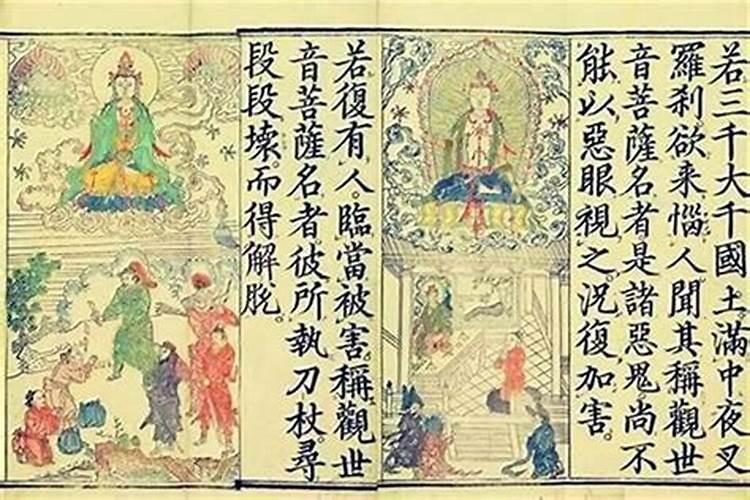 若三千大千國土。滿中夜叉
羅刹欲来惱人聞其稱觀世
音菩薩名者是諸惡鬼尚不
能以惡眼視之。況復加害。
若復有人。臨當被害。稱觀世
音菩薩名者彼所執刀杖尋
段段壞。而得解脫。